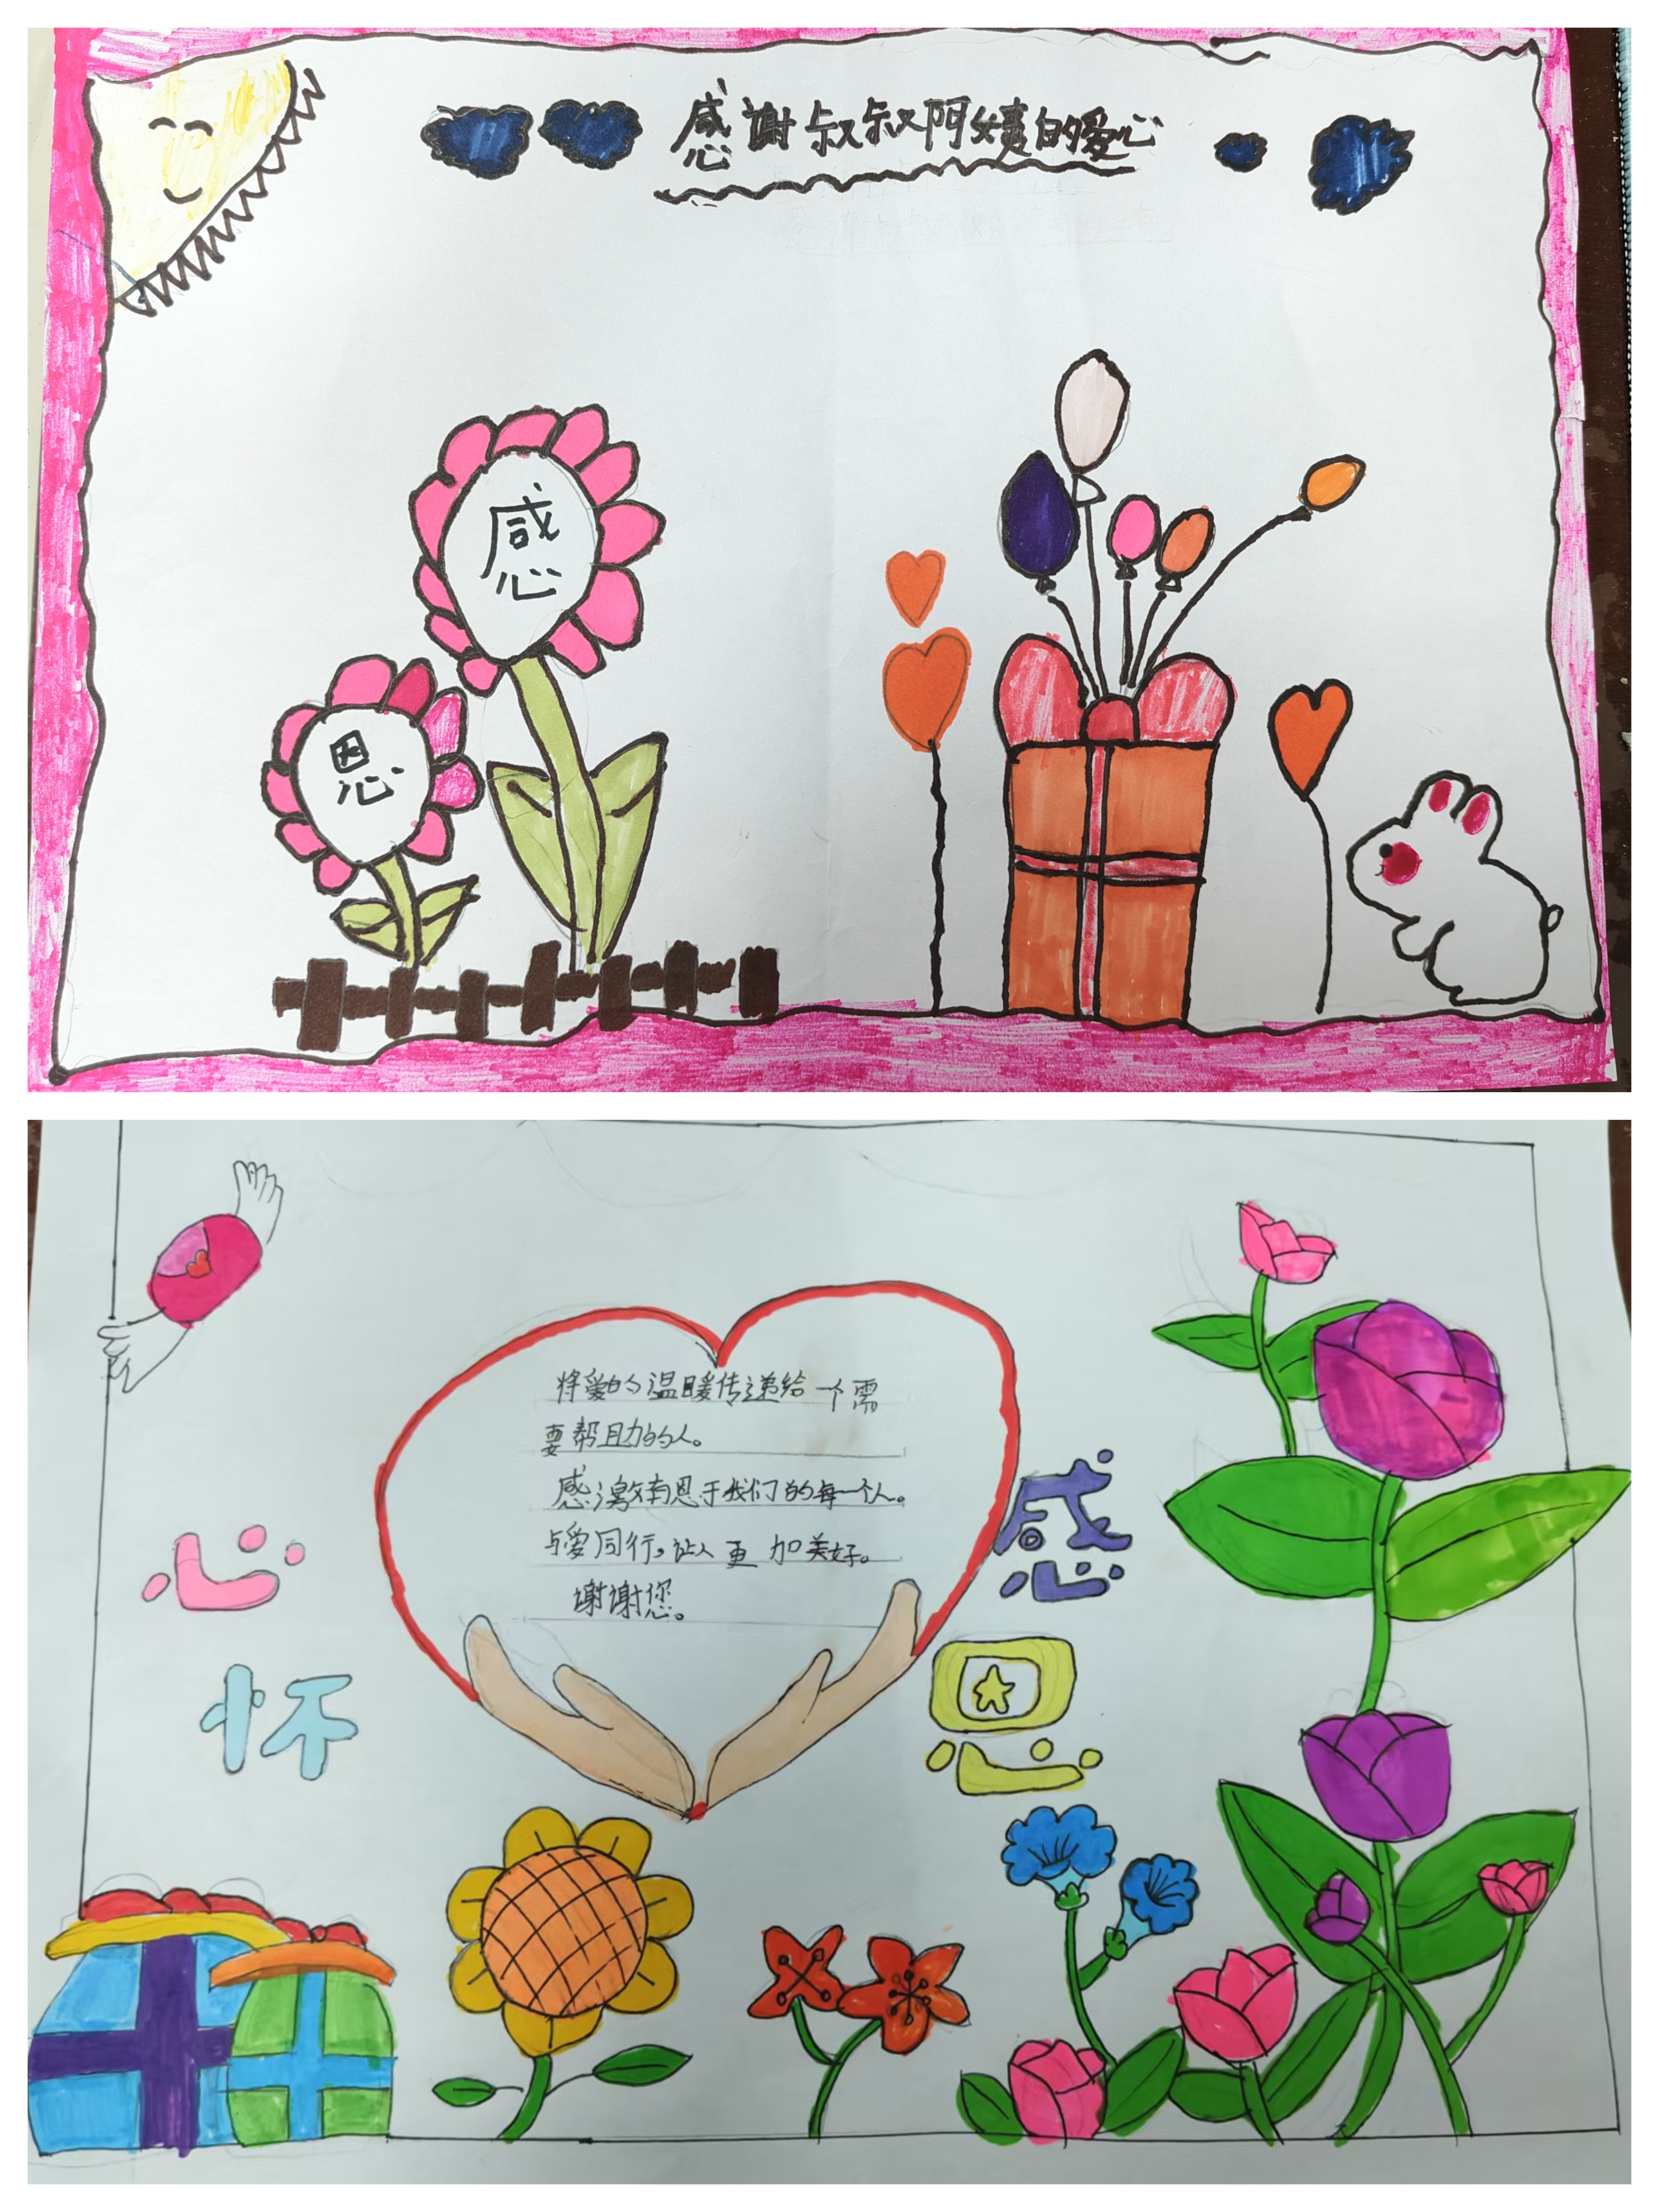 感謝叔叔阿姨的爱心
感
恩
将爱的温暖传递给一个需
要帮助的人。
感激有恩于我们的每一个人。
与爱同行,让人更加美好。
谢谢您。
心
怀
感
恩